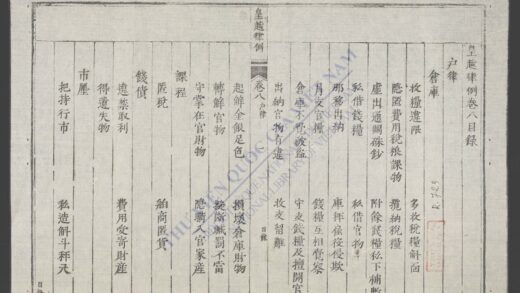 皇越律例卷八目錄
戶律
倉庫
收糧違限 多收稅糧斛面
隱匿費用稅糧課物 攬納稅糧
虛出通關硃鈔 附餘錢糧私下補數
私借錢糧 私借官物
那移出納 庫秤雇役侵欺
冒支官糧 錢糧互相覺察
倉庫不覺被盜 守支錢糧及擅開官
皇越律例 卷八 戶律 目錄
出納官物有違 收支留難
起解金銀足色 損壞倉庫財物
轉解官物 擬斷贓罰不當
守掌在官財物 隱瞞入官家產
課程
匿稅 舶商匿貨
錢債
違禁取利 費用受寄財產
得遺失物
市廛
把持行市 私造斛斗秤尺
THƯ VIỆN QUỐC GIA VIỆT NAM
NATIONAL LIBRARY OF VIETNAM